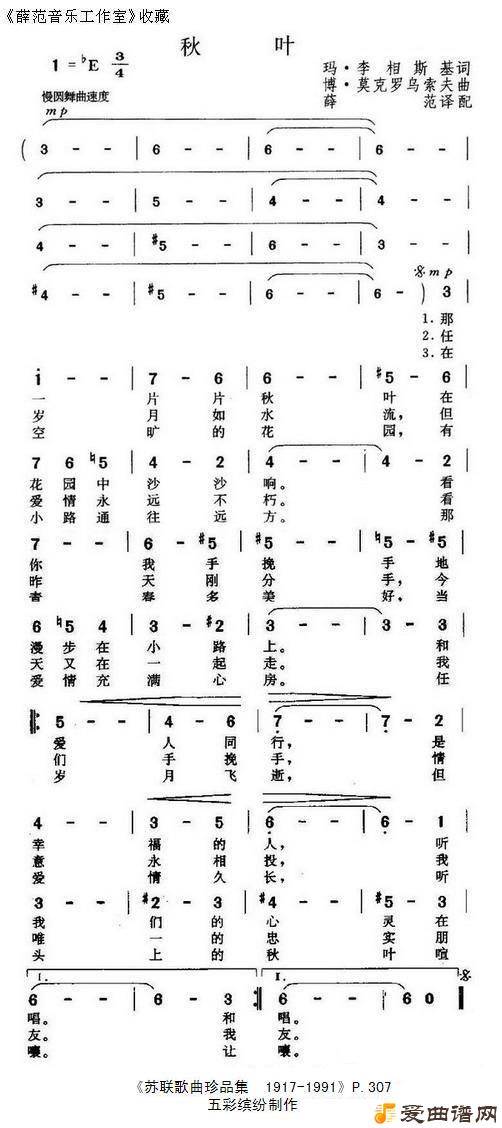 《薛范音乐工作室》收藏
秋 叶
1=♭E 3/4
玛·李相斯基词
博·莫克罗乌索夫曲
薛 范译配
慢圆舞曲速度
mp
( 3 - - | 6 - - | 6 - - | 6 - - |
3 - - | 5 - - | 4 - - | 4 - - |
4 - - | #5 - - | 6 - - | 3 - - |
mp
#4 - - | #5 - - | 6 - - | 6 - ) 3 |
1.那
2.任
3.在
1 - - | 7 - 6 | 6 - - | #5 - 6 |
一 片 片 秋 叶 在
岁 月 如 水 流，但
空 旷 的 花 园，有
7 6 ♮5 | 4 - 2 | 4 - - | 4 - 2 |
花 园 中 沙 沙 响。 看
爱 情 永 远 不 朽。 看
小 路 通 往 远 方。 那
7 - - | 6 - #5 | #5 - - | ♮5 - #5 |
你 我 手 挽 手 地
昨 天 刚 分 手，今
青 春 多 美 好，当
6 ♮5 4 | 3 - #2 | 3 - - | 3 - 3 |
漫 步 在 小 路 上。 和
天 又 在 一 起 走。 我
爱 情 充 满 心 房。 任
5 - - | 4 - 6 | 7 - - | 7 - 2 |
爱 人 同 行， 是
们 手 挽 手， 情
岁 月 飞 逝， 但
4 - - | 3 - 5 | 6 - - | 6 - 1 |
幸 福 的 人， 听
意 永 相 投， 我
爱 情 久 长， 听
3 - - | #2 - 3 | #4 - - | #5 - 3 |
我 们 的 心 灵 在
唯 一 的 忠 实 朋
头 上 的 秋 叶 喧
1. I.
6 - - | 6 - 3 | 6 - - | 6 0
唱。 和 唱。
友。 我 友。
嚷。 让 嚷。
《苏联歌曲珍品集 1917-1991》P.307
五彩缤纷制作
爱曲谱网